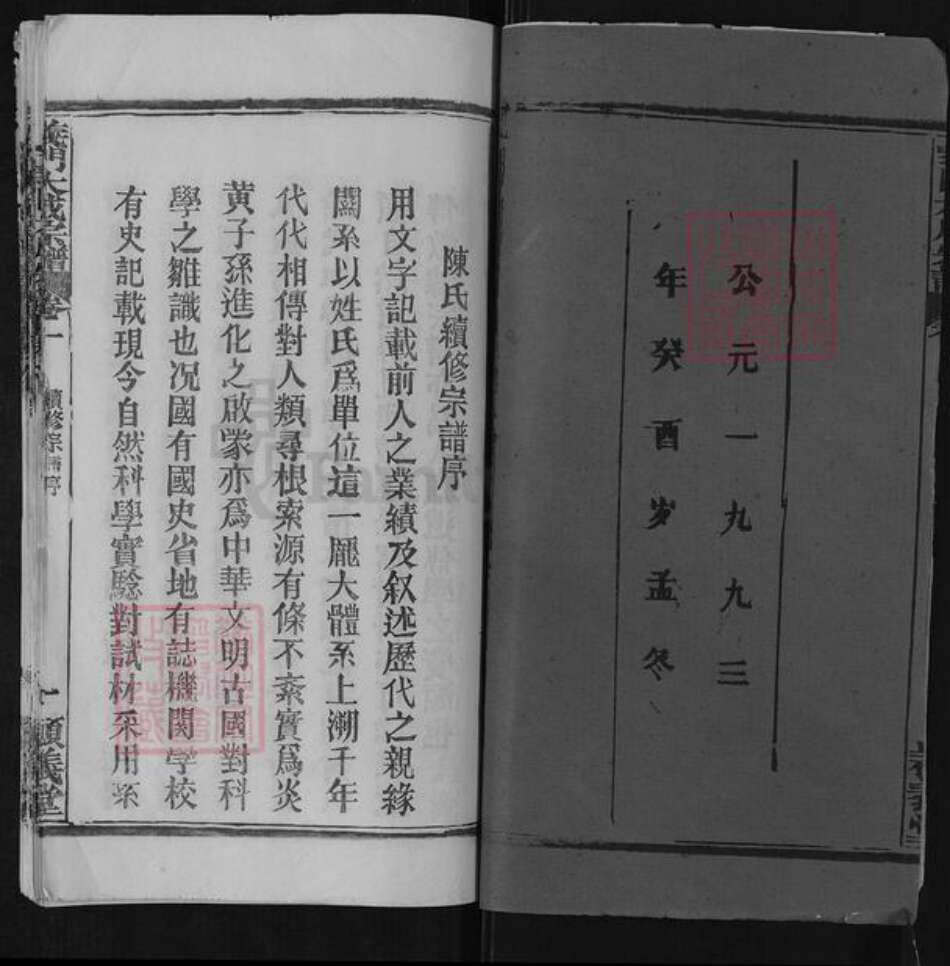 公元一九九三
年癸酉岁孟冬
陳氏續修宗譜序
用文字記載前人之業績及叙述歷代之親緣
關系以姓氏爲單位這一龐大體系上溯千年
代代相傳對人類尋根索源有條不紊實爲炎
黄子孫進化之啟蒙亦爲中華文明古國對科
學之雛識也况國有國史省地有誌機関学校
有史記載現今自然科學實驗對試材采用系
大成宗譜
卷一
續修宗譜序
一
順義堂